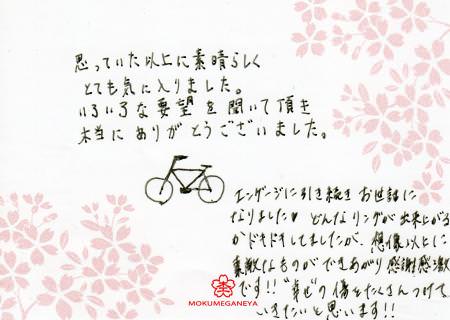 思っていた以上に素晴らしく
とても気に入りました。
いろいろな要望を聞いて頂き
本当にありがとうございました。
エンゲージに引き続きお世話に
なりました♥ どんなリングが出来上がる
かドキドキしてましたが、想像以上に
素敵なものができあがり感謝感激
です!! "幸せ"の傷をたくさんつけて
いきたいと思います!!
MOKUMEGANEYA